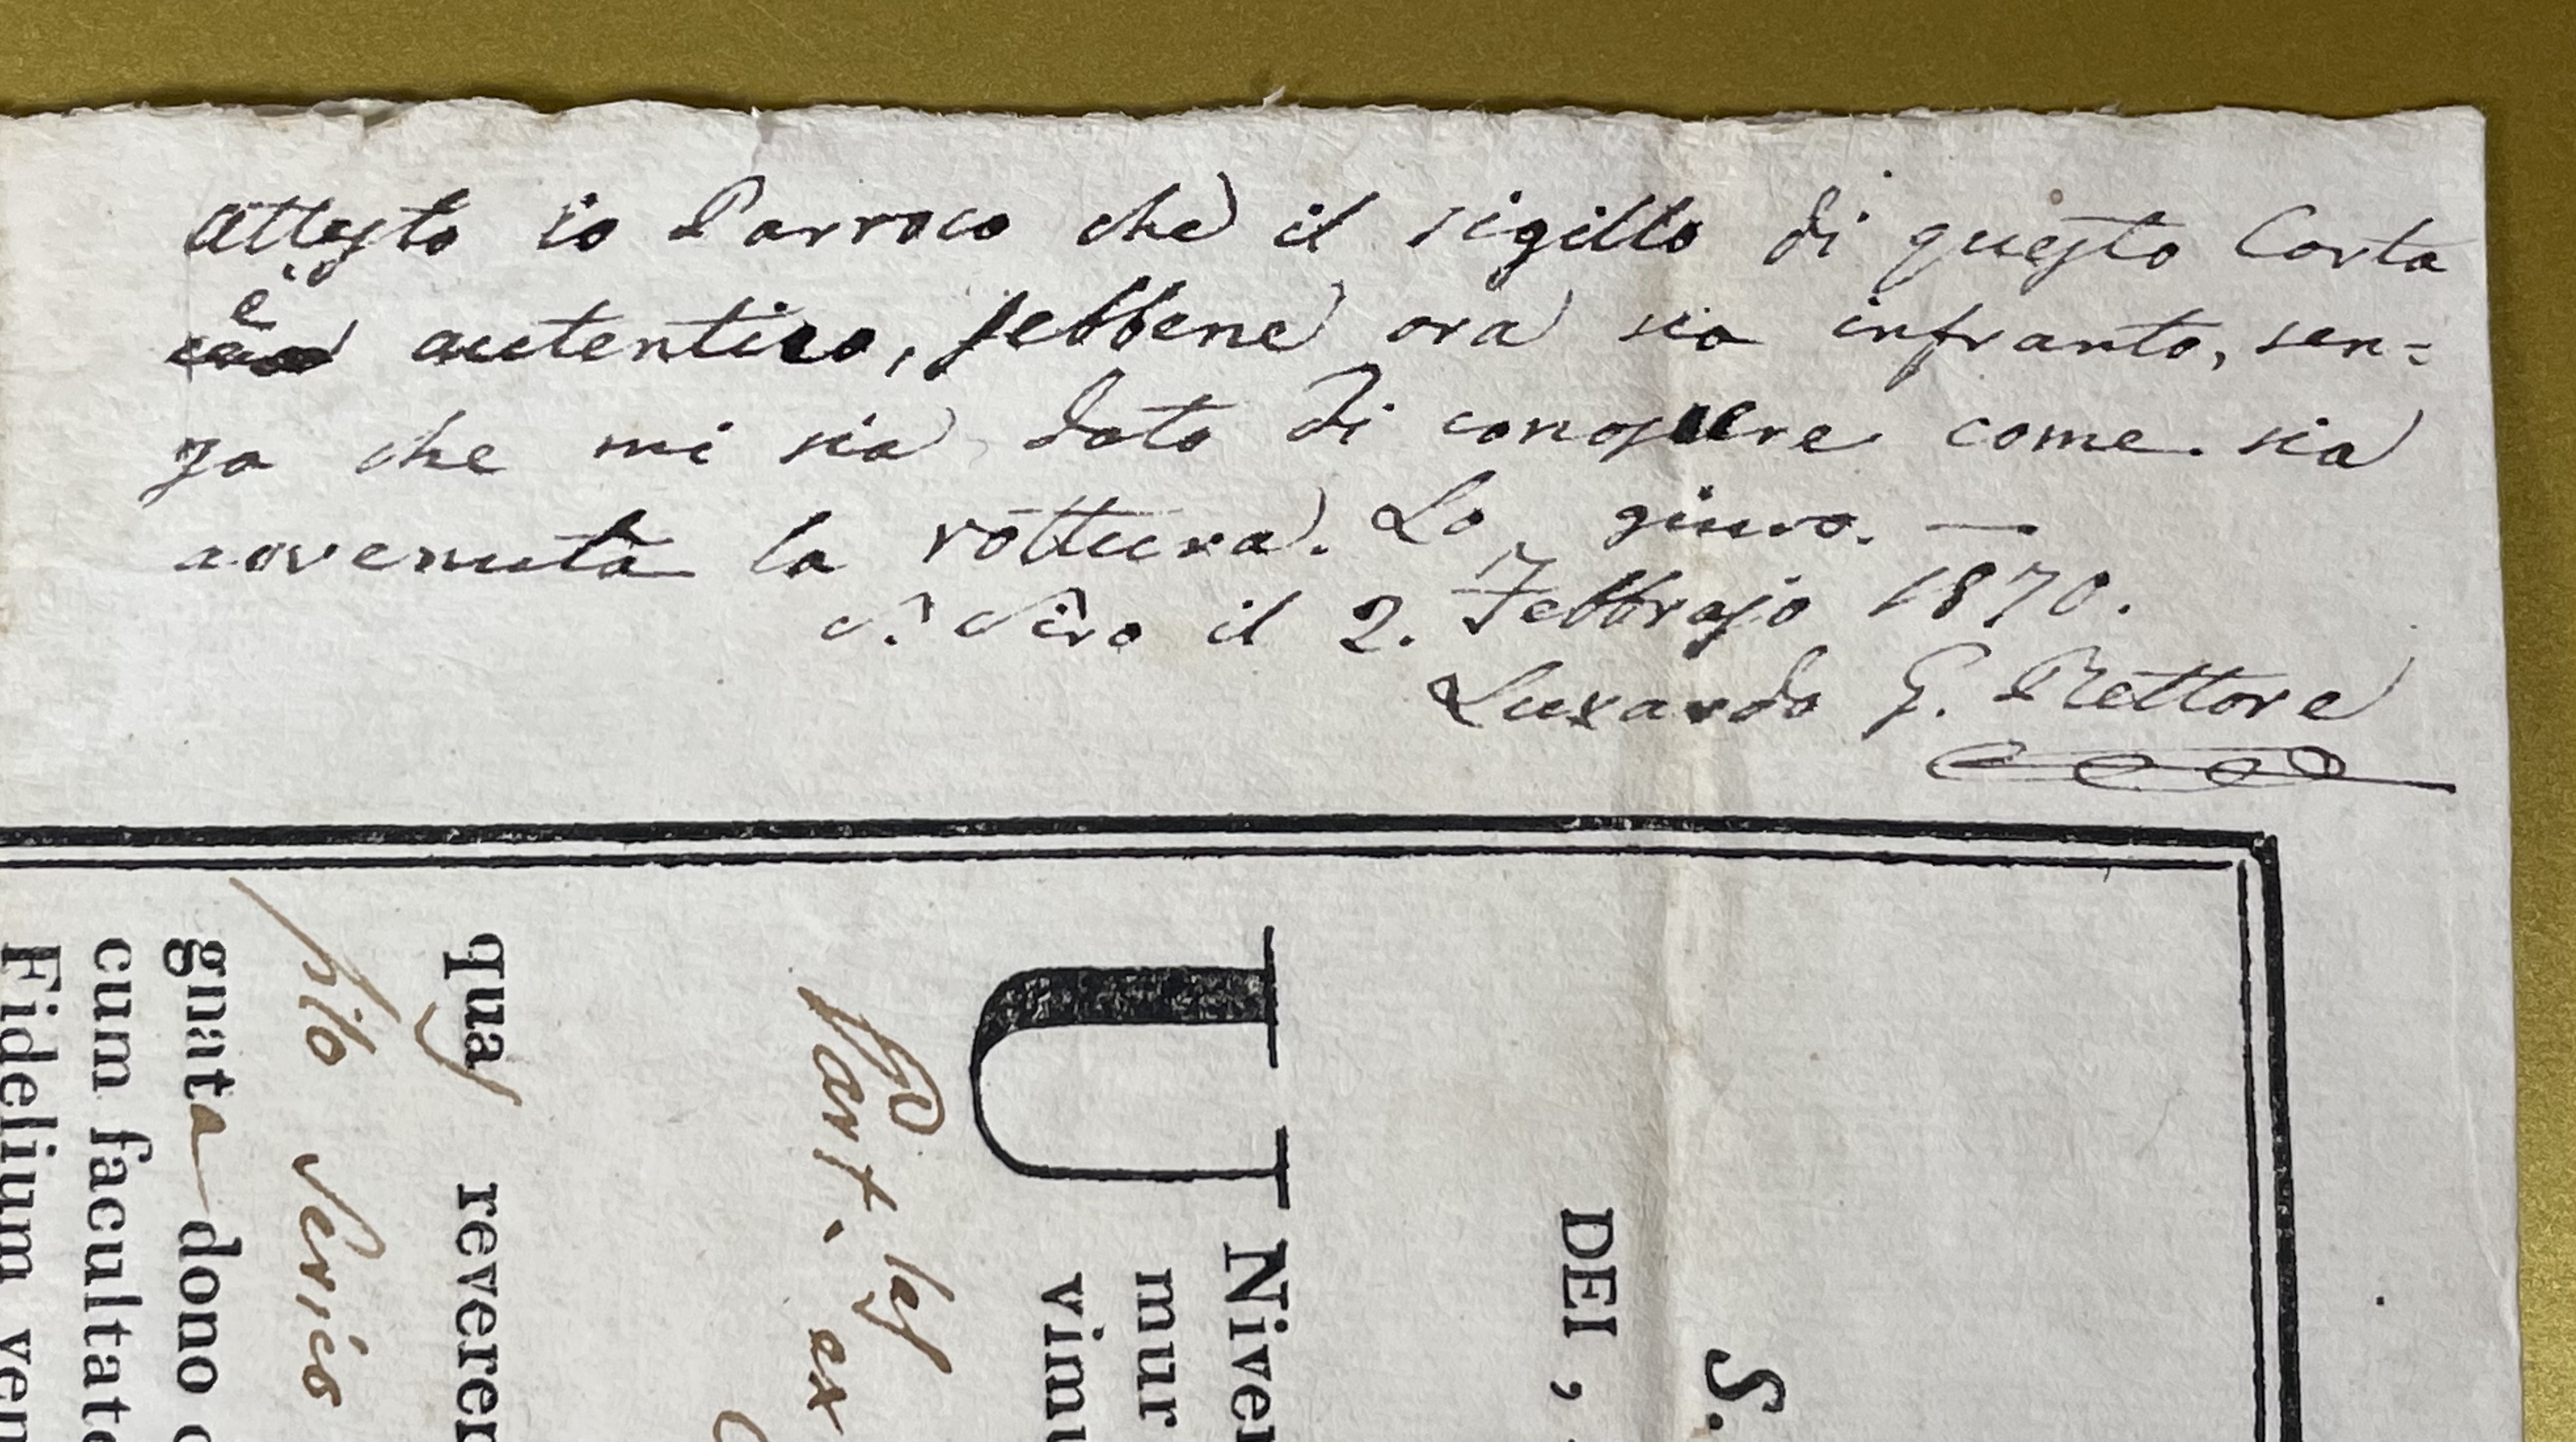 Attesto io Parroco che il sigillo di questa Carta
è autentico, sebbene ora sia infranto, sen=
za che mi sia dato di conoscere come sia
avvenuta la rottura. Lo giuro. —
S. Siro il 2. Febbrajo 1870.
Luxardo G. Rettore
S.
DEI ,
U
Niver
mur
vimu
Mart. ex
qua reveren
pito
gnata dono
cum facultate
Fidelium ven